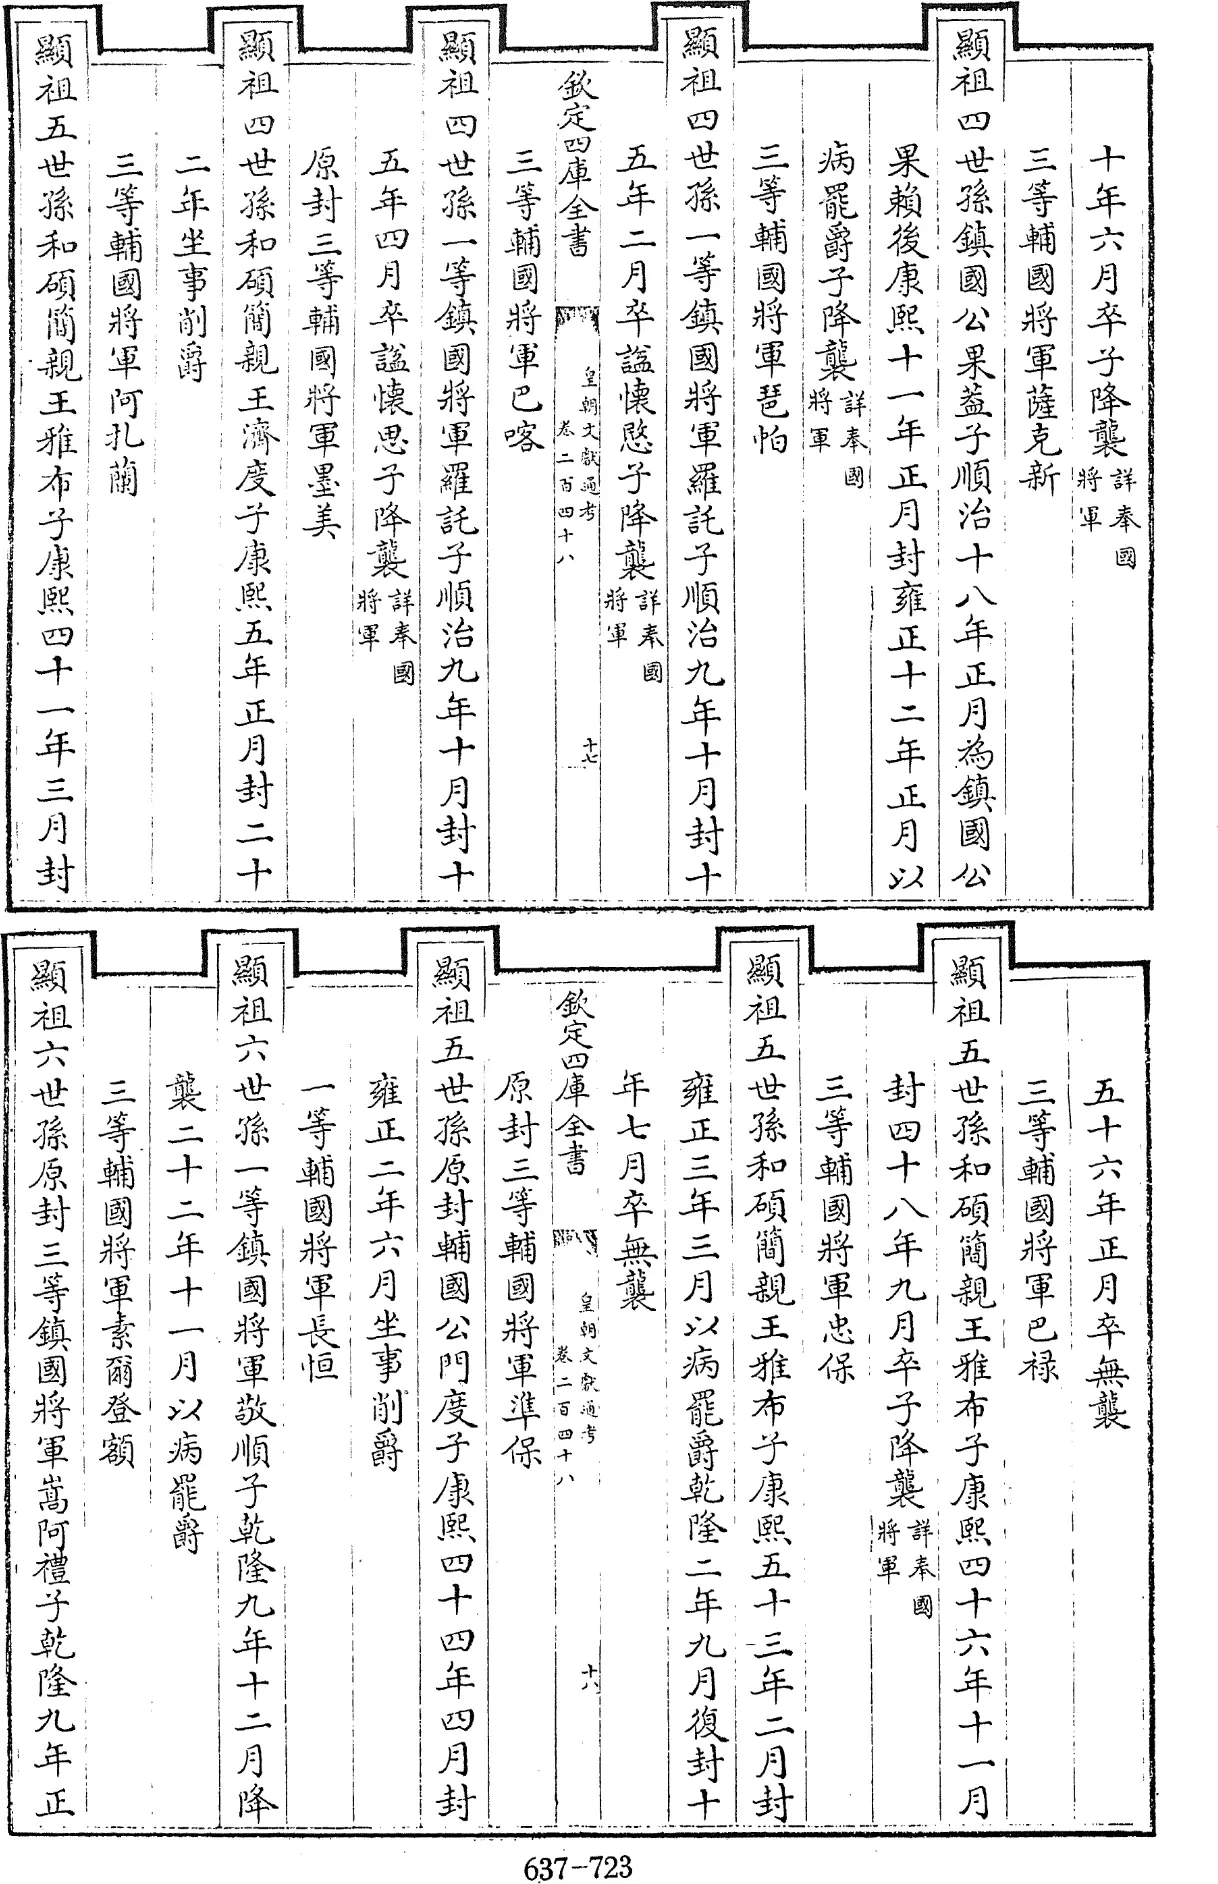 十年六月卒子降襲詳奉國將軍
三等輔國將軍薩克新
顯祖四世孫鎮國公果葢子順治十八年正月為鎮國公
果賴後康熙十一年正月封雍正十二年正月以
病罷爵子降襲詳奉國將軍
三等輔國將軍琶帕
顯祖四世孫一等鎮國將軍羅託子順治九年十月封十
五年二月卒諡懷愍子降襲詳奉國將軍
欽定四庫全書 皇朝文獻通考 卷二百四十八 十七
三等輔國將軍巴喀
顯祖四世孫一等鎮國將軍羅託子順治九年十月封十
五年四月卒諡懷思子降襲詳奉國將軍
原封三等輔國將軍墨美
顯祖四世孫和碩簡親王濟度子康熙五年正月封二十
二年坐事削爵
三等輔國將軍阿扎蘭
顯祖五世孫和碩簡親王雅布子康熙四十一年三月封
五十六年正月卒無襲
三等輔國將軍巴祿
顯祖五世孫和碩簡親王雅布子康熙四十六年十一月
封四十八年九月卒子降襲詳奉國將軍
三等輔國將軍忠保
顯祖五世孫和碩簡親王雅布子康熙五十三年二月封
雍正三年三月以病罷爵乾隆二年九月復封十
年七月卒無襲
欽定四庫全書 皇朝文獻通考 卷二百四十八 十八
原封三等輔國將軍準保
顯祖五世孫原封輔國公門度子康熙四十四年四月封
雍正二年六月坐事削爵
一等輔國將軍長恒
顯祖六世孫一等鎮國將軍敬順子乾隆九年十二月降
襲二十二年十一月以病罷爵
三等輔國將軍素爾登額
顯祖六世孫原封三等鎮國將軍嵩阿禮子乾隆九年正
637-723